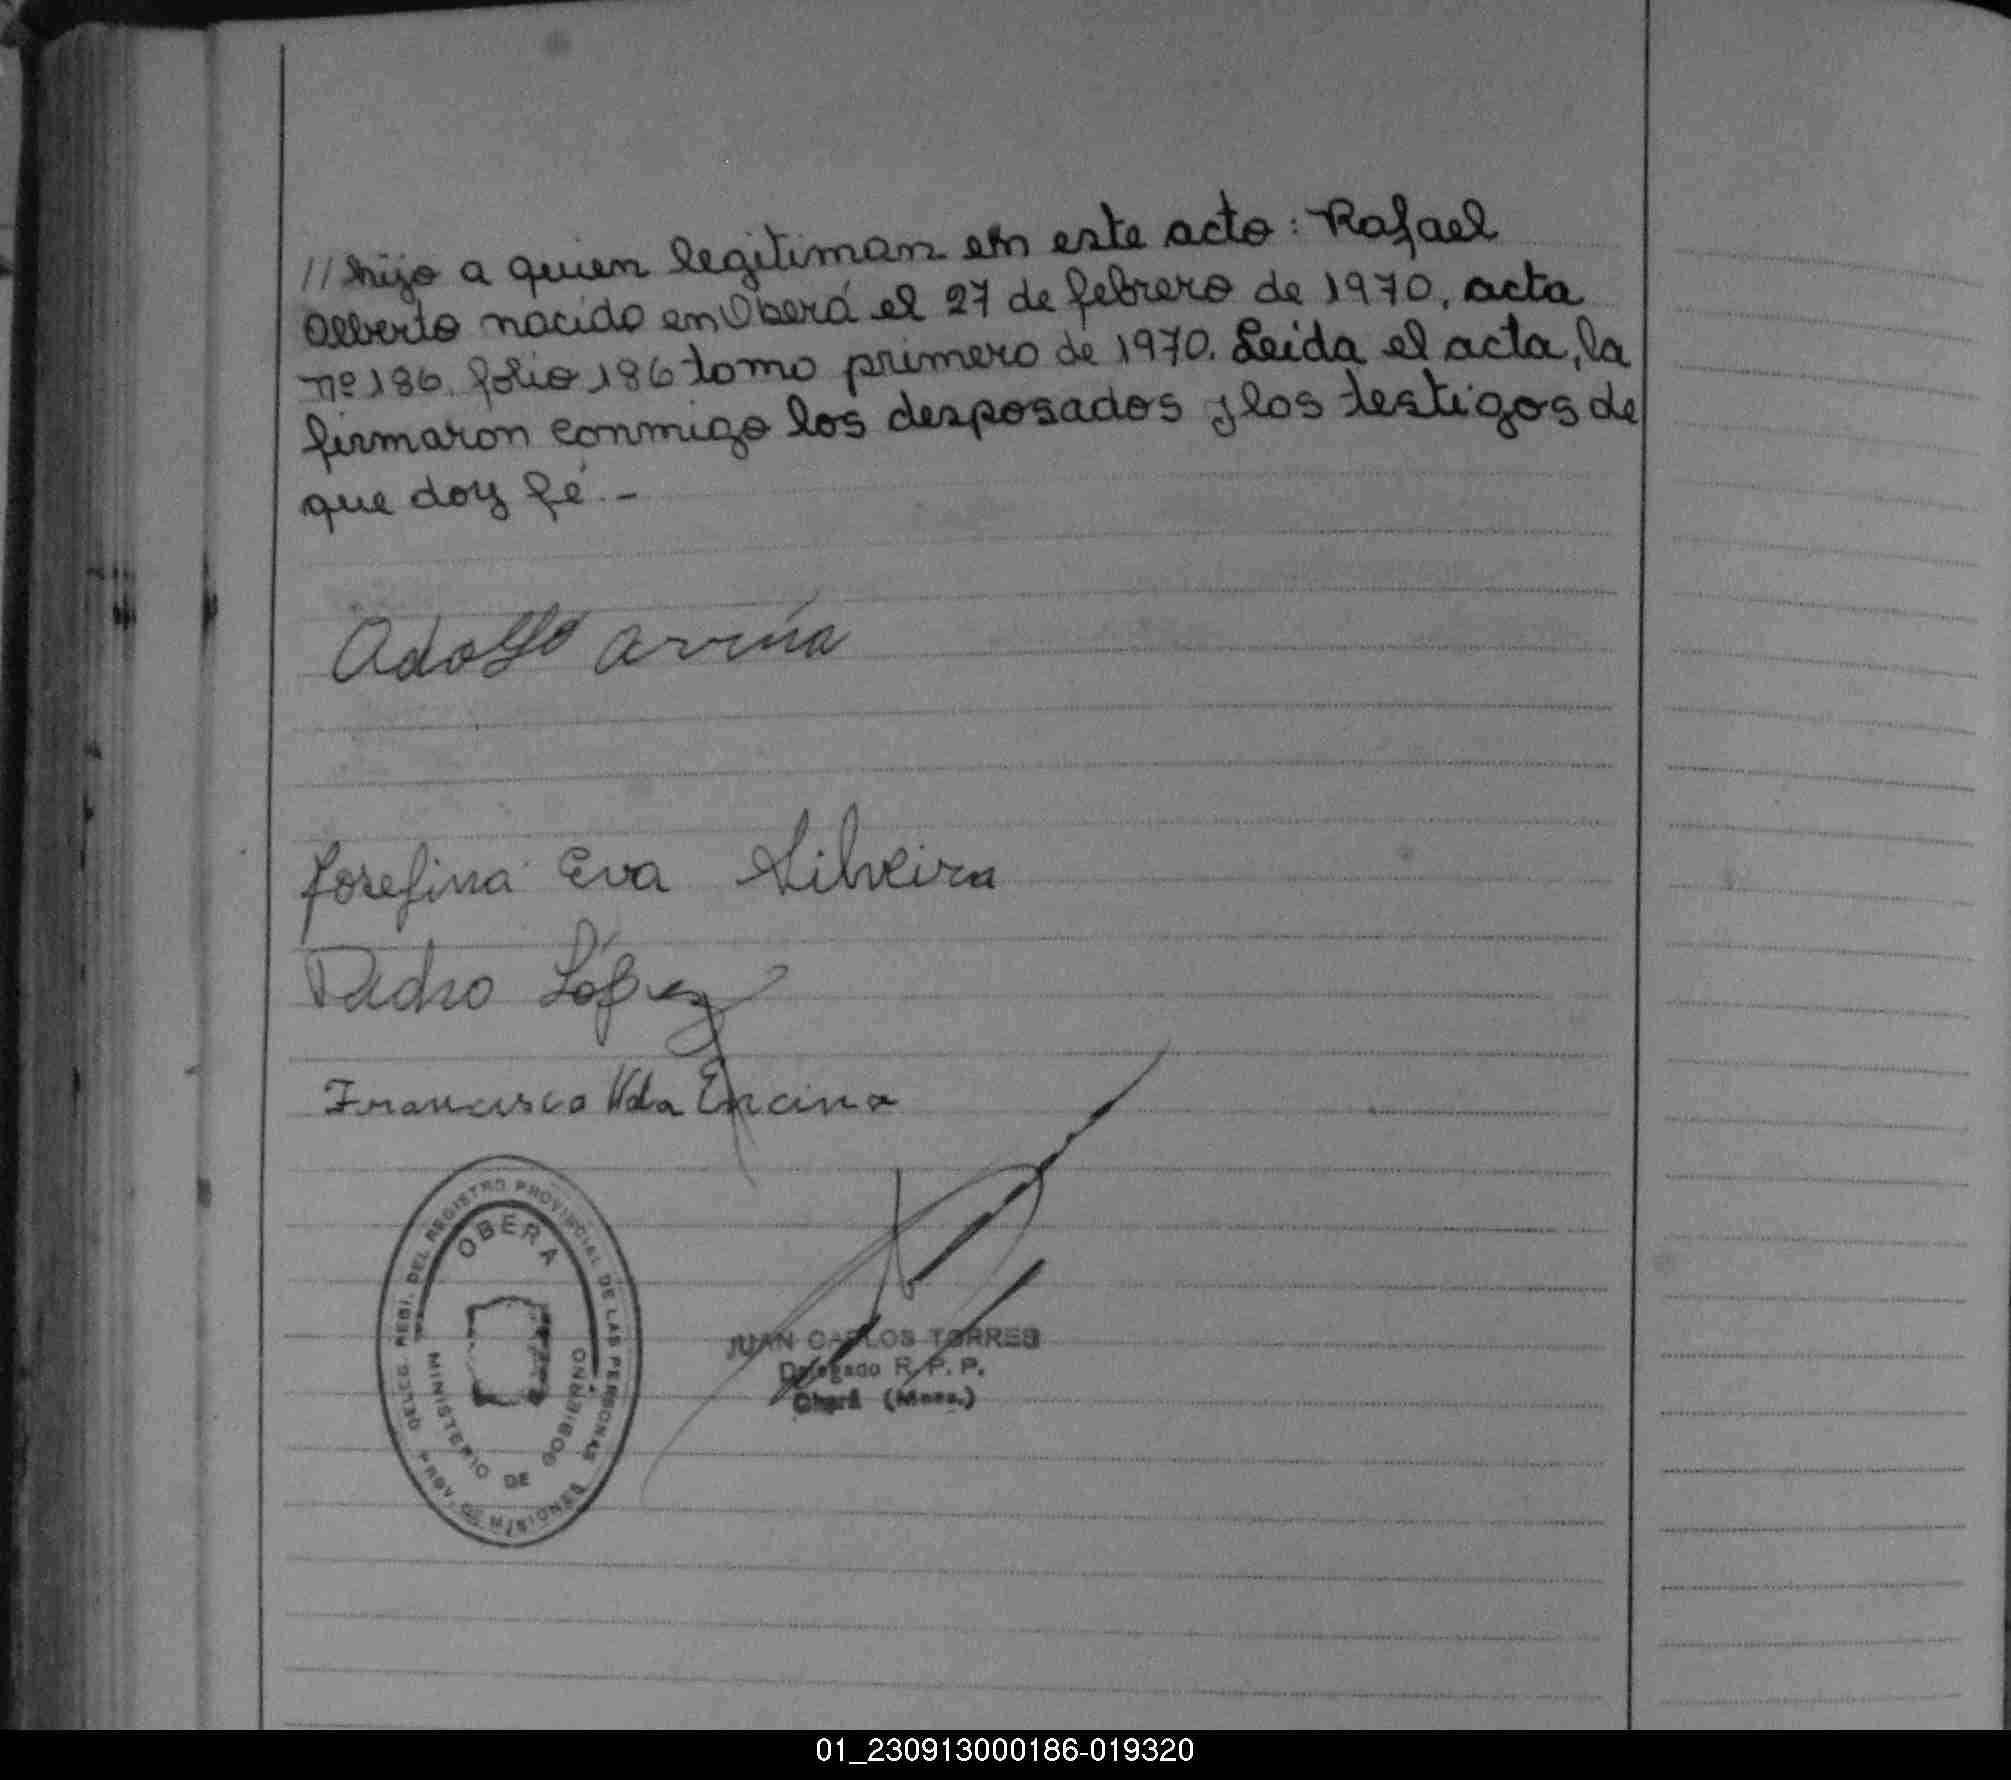 // hijo a quien legitiman en este acto: Rafael
Alberto nacido en Oberá el 27 de febrero de 1970, acta
nº 186. folio 186 tomo primero de 1970. Leida el acta, la
firmaron conmigo los desposados y los testigos de
que doy fé.-
Adolfo
Josefina Eva Silveira
Pedro López
Francisco Encina
DELEG. REGI. DEL REGISTRO PROVINCIAL DE LAS PERSONAS
OBERA
MINISTERIO DE GOBIERNO
PROV. DE MISIONES
JUAN CARLOS TORRES
Delegado R. P. P.
Oberá (Mnes.)
01_230913000186-019320